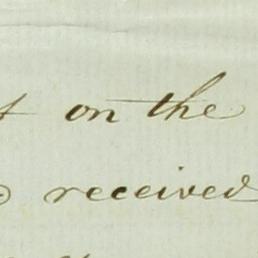 on the
received